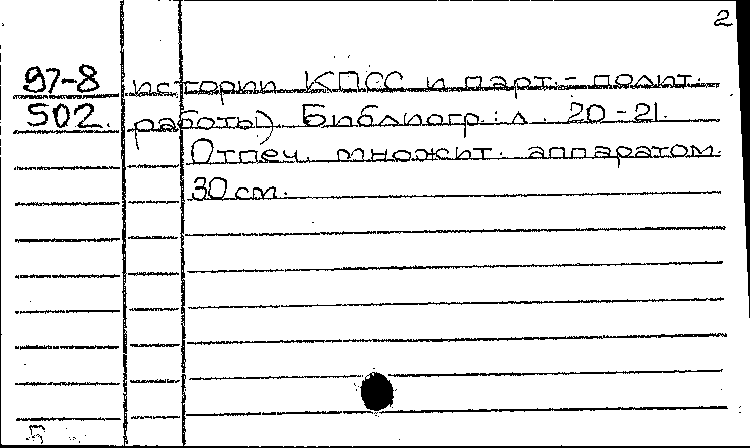 2
97-8 истории КПСС и парт.- полит.
502. работы) Библиогр.: л. 20-21.
Отпеч. множит. аппаратом.
30 см.
Б